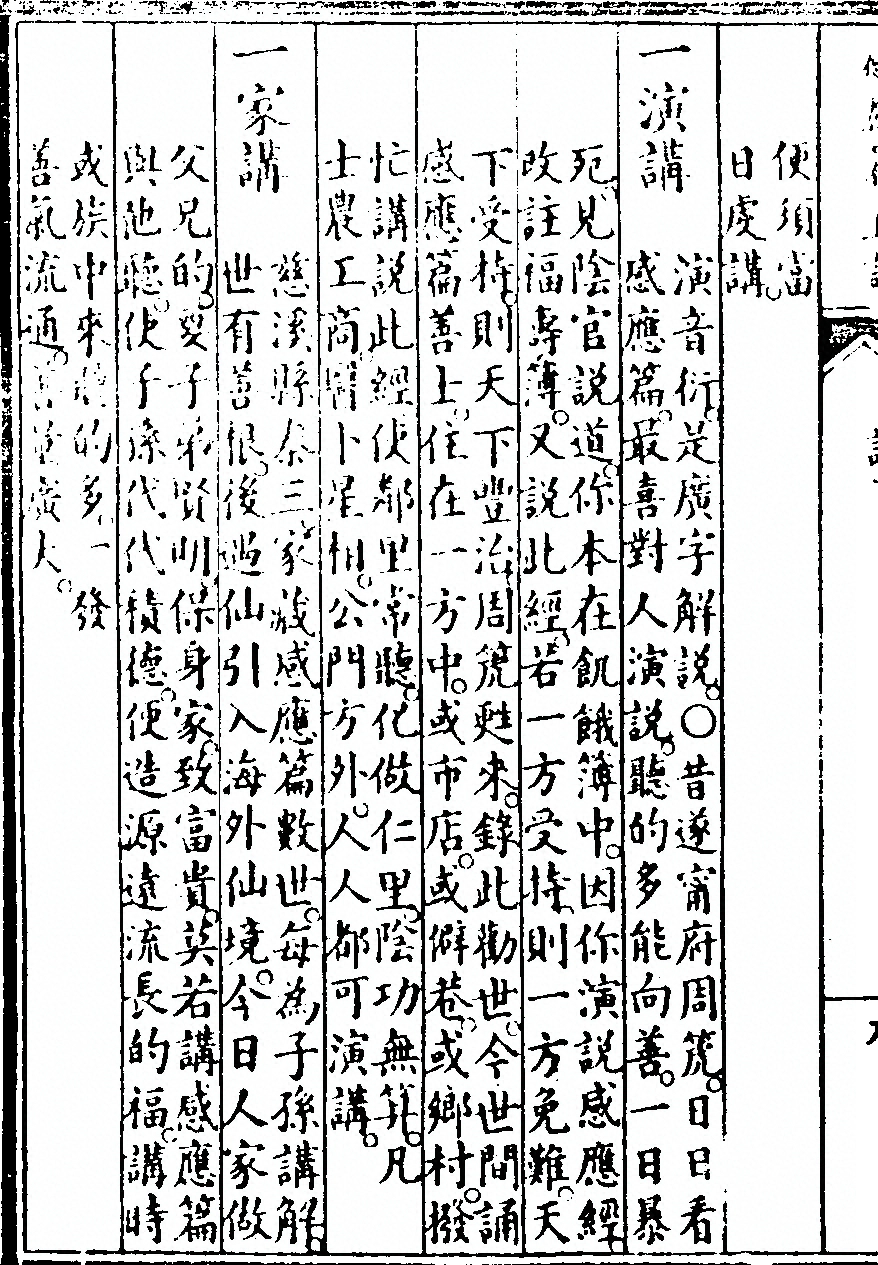 便須當
日虔講。
一演講
演音衍。是廣字解說。○昔遂甯府周箎。日日看
感應篇。最喜對人演說。聽的多能向善。一日暴
死。見陰官說道。你本在飢餓簿中。因你演說感應經。
改註福壽簿。又說此經。若一方受持。則一方免難。天
下受持。則天下豐治。周箎甦來。錄此勸世。今世間誦
感應篇善士。住在一方中。或市店。或僻巷。或鄉村。撥
忙講說此經。使鄰里常聽。化做仁里。陰功無算。凡
士農工商醫卜星相。公門方外。人人都可演講。
一家講
慈溪縣秦三家藏感應篇數世。每為子孫講解。
世有善根。後遇仙引入海外仙境。今日人家做
父兄的。要子弟賢明。保身家。致富貴。莫若講感應篇
與他聽。使子孫代代積德。便造源遠流長的福。講時
或族中來聽的多。一發
善氣流通。善量廣大。